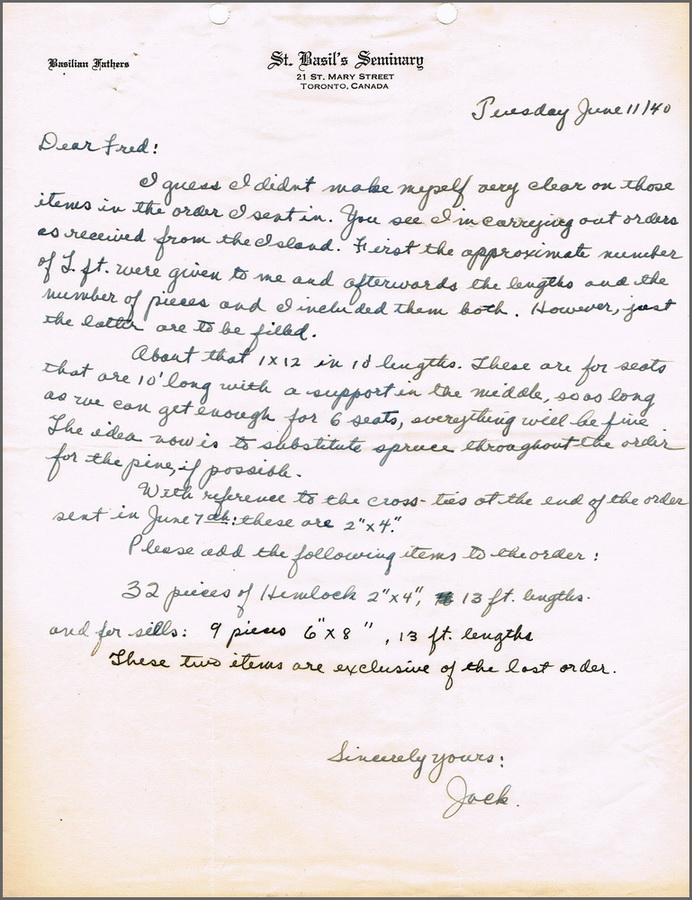 Basilian Fathers
St. Basil's Seminary
21 St. Mary Street
Toronto, Canada
Tuesday June 11/40
Dear Fred:
I guess I didn't make myself very clear on those
items in the order I sent in. You see I'm carrying out orders
as received from the Island. First the approximate number
of L. ft. were given to me and afterwards the lengths and the
number of pieces and I included them both. However, just
the latter are to be filled.
About that 1x12 in 10' lengths. These are for seats
that are 10' long with a support in the middle, so as long
as we can get enough for 6 seats, everything will be fine.
The idea now is to substitute spruce throughout the order
for the pine, if possible.
With reference to the cross-ties at the end of the order
sent in June 7th: these are 2"x4".
Please add the following items to the order:
32 pieces of Hemlock 2"x4", 13 ft. lengths.
and for sills: 9 pieces 6"x8", 13 ft. lengths
These two items are exclusive of the last order.
Sincerely yours:
Jack.